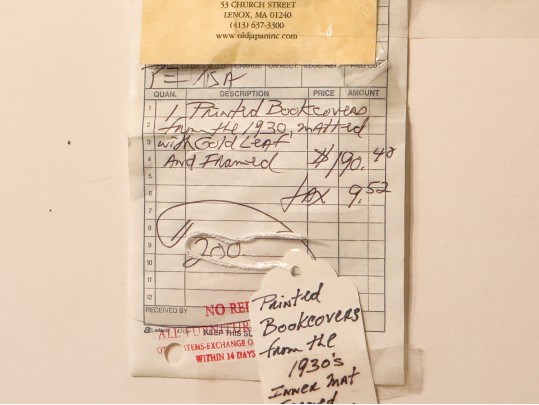 53 CHURCH STREET
LENOX, MA 01240
(413) 637-3300
www.oldjapaninc.com
CHARGE ON ACCT.
VISA
QUAN. DESCRIPTION PRICE AMOUNT
1 1 Printed Bookcovers
2 from the 1930, matted
3 with Gold Leaf
4 And Framed $190.48
5
6 tax 9.52
7
8
9 200.
10
11
12
RECEIVED BY NO
KEEP THIS
ALL FURNITURE
ITEMS-EXCHANGE
WITHIN 14 DAYS
Printed
Bookcovers
from the
1930's
Inner mat
Framed